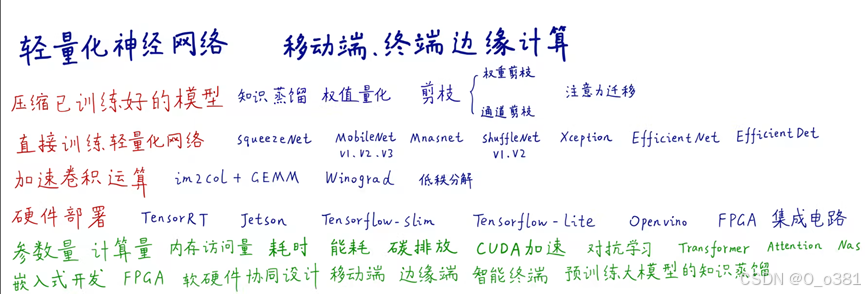 轻量化神经网络 移动端、终端边缘计算
压缩已训练好的模型 知识蒸馏 权值量化 剪枝 权重剪枝 通道剪枝 注意力迁移
直接训练轻量化网络 squeezeNet MobileNet V1.V2.V3 Mnasnet shuffleNet V1.V2 Xception EfficientNet EfficientDet
加速卷积运算 im2col + GEMM Winograd 低秩分解
硬件部署 TensorRT Jetson Tensorflow-Slim Tensorflow-Lite Openvino FPGA 集成电路
参数量 计算量 内存访问量 耗时 能耗 碳排放 CUDA加速 对抗学习 Transformer Attention Nas
嵌入式开发 FPGA 软硬件协同设计 移动端 边缘端 智能终端 预训练大模型的知识蒸馏
CSDN @O_o381